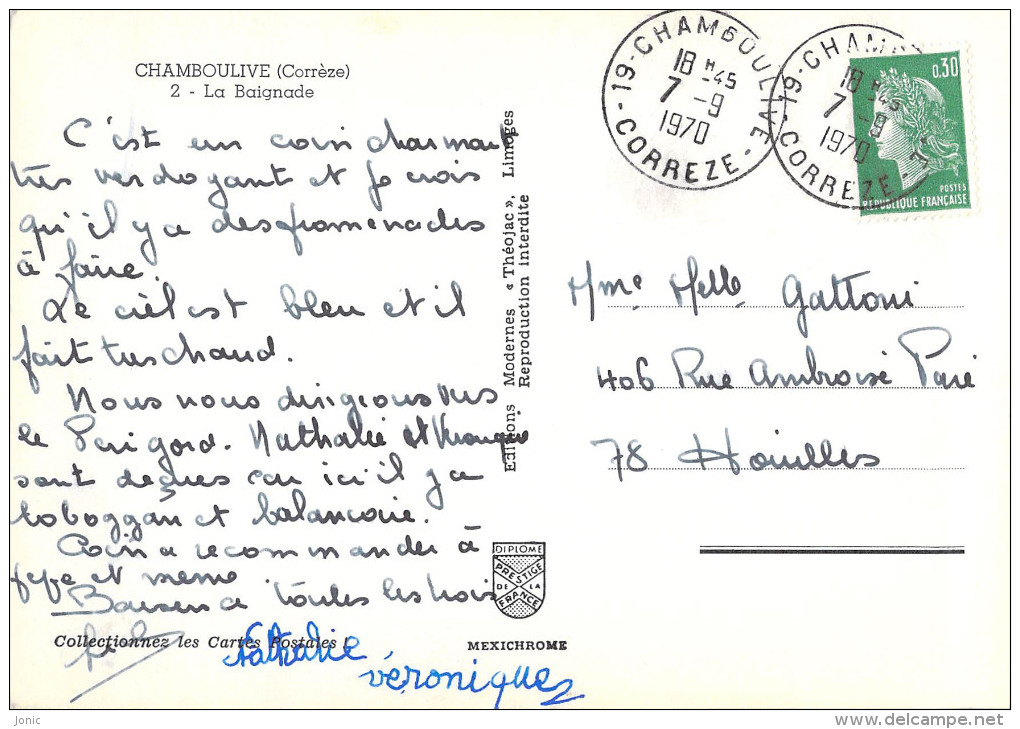 CHAMBOULIVE (Corrèze)
2 - La Baignade
C'est un coin charmant
très verdoyant et je crois
qu'il y a des promenades
à faire.
Le ciel est bleu et il
fait très chaud.
Nous nous dirigeons vers
le Périgord. Nathalie et Véronique
sont déçues car ici il y a
toboggan et balançoire.
Coin a recommander à
pepe et meme.
Baisers a toutes les trois
Nathalie
véronique
Collectionnez les Cartes Postales !
Editions Modernes « Théojac », Limoges
Reproduction interdite
DIPLOME
PRESTIGE
DE LA
FRANCE
MEXICHROME
19-CHAMBOULIVE
18 H -45
7 -9
1970
CORREZE
19-CHAMB
18 H -45
7 -9
1970
CORREZE
0,30
POSTES
REPUBLIQUE FRANÇAISE
Mme Melle Gattoni
406 Rue Ambroise Paré
78 Houilles
Jonic
delcampe.net